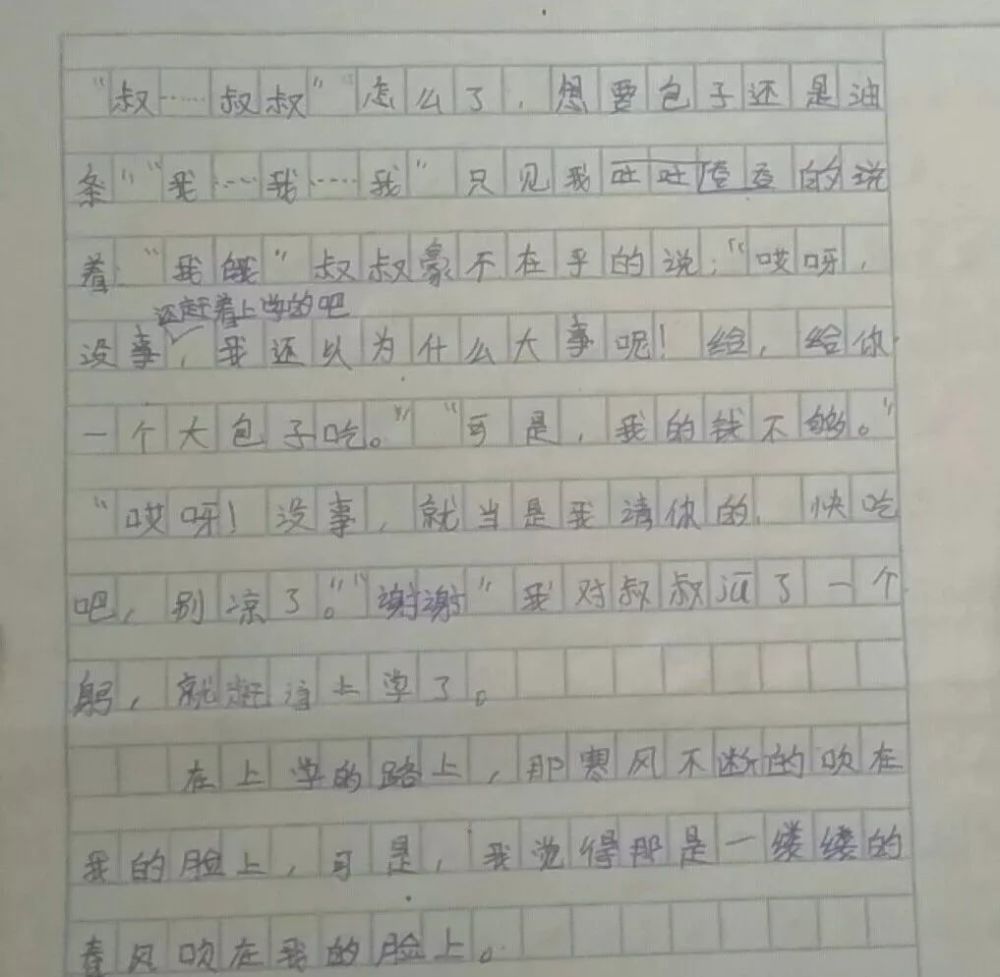 “叔……叔叔”“怎么了，想要包子还是油
条”“我……我……我”只见我吐吐吞吞的说
着：“我饿”叔叔豪不在乎的说：“哎呀，
还赶着上学的吧
没事，我还以为什么大事呢！给，给你
一个大包子吃。”“可是，我的钱不够。”
“哎呀！没事，就当是我请你的，快吃
吧，别凉了。”“谢谢”我对叔叔jū了一个
躬，就赶着上学了。
在上学的路上，那寒风不断的吹在
我的脸上，可是，我觉得那是一缕缕的
春风吹在我的脸上。